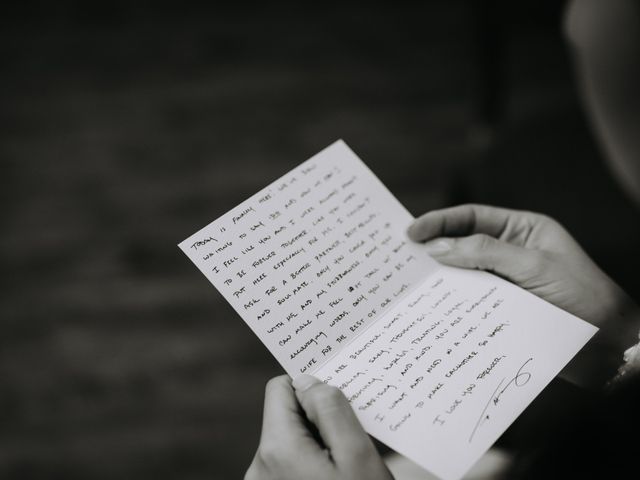 TODAY IS FINALLY HERE! WE'VE BEEN
WAITING TO SAY IDO AND NOW WE CAN!
I FEEL LIKE YOU AND I WERE ALWAYS MEANT
TO BE FOREVER TOGETHER LIKE YOU WERE
PUT HERE ESPECIALLY FOR ME. I COULDN'T
ASK FOR A BETTER PARTNER, BEST FRIEND,
AND SOULMATE. ONLY YOU COULD PUT UP
WITH ME AND MY STUBBORNESS, ONLY YOU
CAN MAKE ME FEEL TALL W/ YOUR
ENCOURAGING WORDS, ONLY YOU CAN BE MY
WIFE FOR THE REST OF OUR LIVES.
YOU ARE BEAUTIFUL, SMART, FUNNY,
CARING, SEXY, THOUGHTFUL,
HONEST, TRUSTING, LOYAL,
AND KIND. YOU ARE EVERYTHING
I WANT AND NEED IN A WIFE. WE ARE
GOING TO MAKE EACHOTHER SO HAPPY.
I LOVE YOU FOREVER,